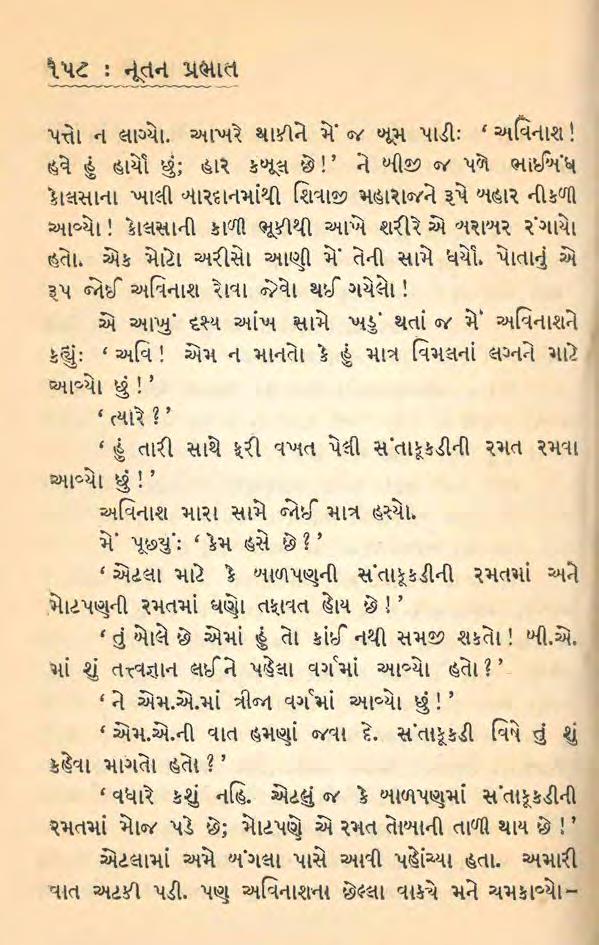 ૧૫૮ : નૂતન પ્રભાત
પત્તો ન લાગ્યો. આખરે થાકીને મેં જ બૂમ પાડી: ‘ અવિનાશ !
હવે હું હાર્યો છું; હાર કબૂલ છે !’ ને બીજી જ પળે ભાઈબંધ
કોલસાના ખાલી બારદાનમાંથી શિવાજી મહારાજને રૂપે બહાર નીકળી
આવ્યો ! કોલસાની કાળી ભૂકીથી આખે શરીરે એ બરાબર રંગાયો
હતો. એક મોટો અરીસો આણી મેં તેની સામે ધર્યો. પોતાનું એ
રૂપ જોઈ અવિનાશ રોવા જેવો થઈ ગયેલો !
એ આખું દૃશ્ય આંખ સામે ખડું થતાં જ મેં અવિનાશને
કહ્યું: ‘ અવિ ! એમ ન માનતો કે હું માત્ર વિમલનાં લગ્નને માટે
આવ્યો છું !’
‘ ત્યારે ?’
‘ હું તારી સાથે ફરી વખત પેલી સંતાકૂકડીની રમત રમવા
આવ્યો છું !’
અવિનાશ મારા સામે જોઈ માત્ર હસ્યો.
મેં પૂછ્યું: ‘ કેમ હસે છે ?’
‘ એટલા માટે કે બાળપણની સંતાકૂકડીની રમતમાં અને
મોટપણની રમતમાં ઘણો તફાવત હોય છે !’
‘ તું બોલે છે એમાં હું તો કાંઈ નથી સમજી શકતો ! બી.એ.
માં શું તત્ત્વજ્ઞાન લઈને પહેલા વર્ગમાં આવ્યો હતો ?’
‘ ને એમ.એ.માં ત્રીજા વર્ગમાં આવ્યો છું !’
‘ એમ.એ.ની વાત હમણાં જવા દે. સંતાકૂકડી વિષે તું શું
કહેવા માગતો હતો ?’
‘ વધારે કશું નહિ. એટલું જ કે બાળપણમાં સંતાકૂકડીની
રમતમાં મોજ પડે છે; મોટપણે એ રમત તોબાની તાળી થાય છે !’
એટલામાં અમે બંગલા પાસે આવી પહોંચ્યા હતા. અમારી
વાત અટકી પડી. પણ અવિનાશના છેલ્લા વાક્યે મને ચમકાવ્યો–